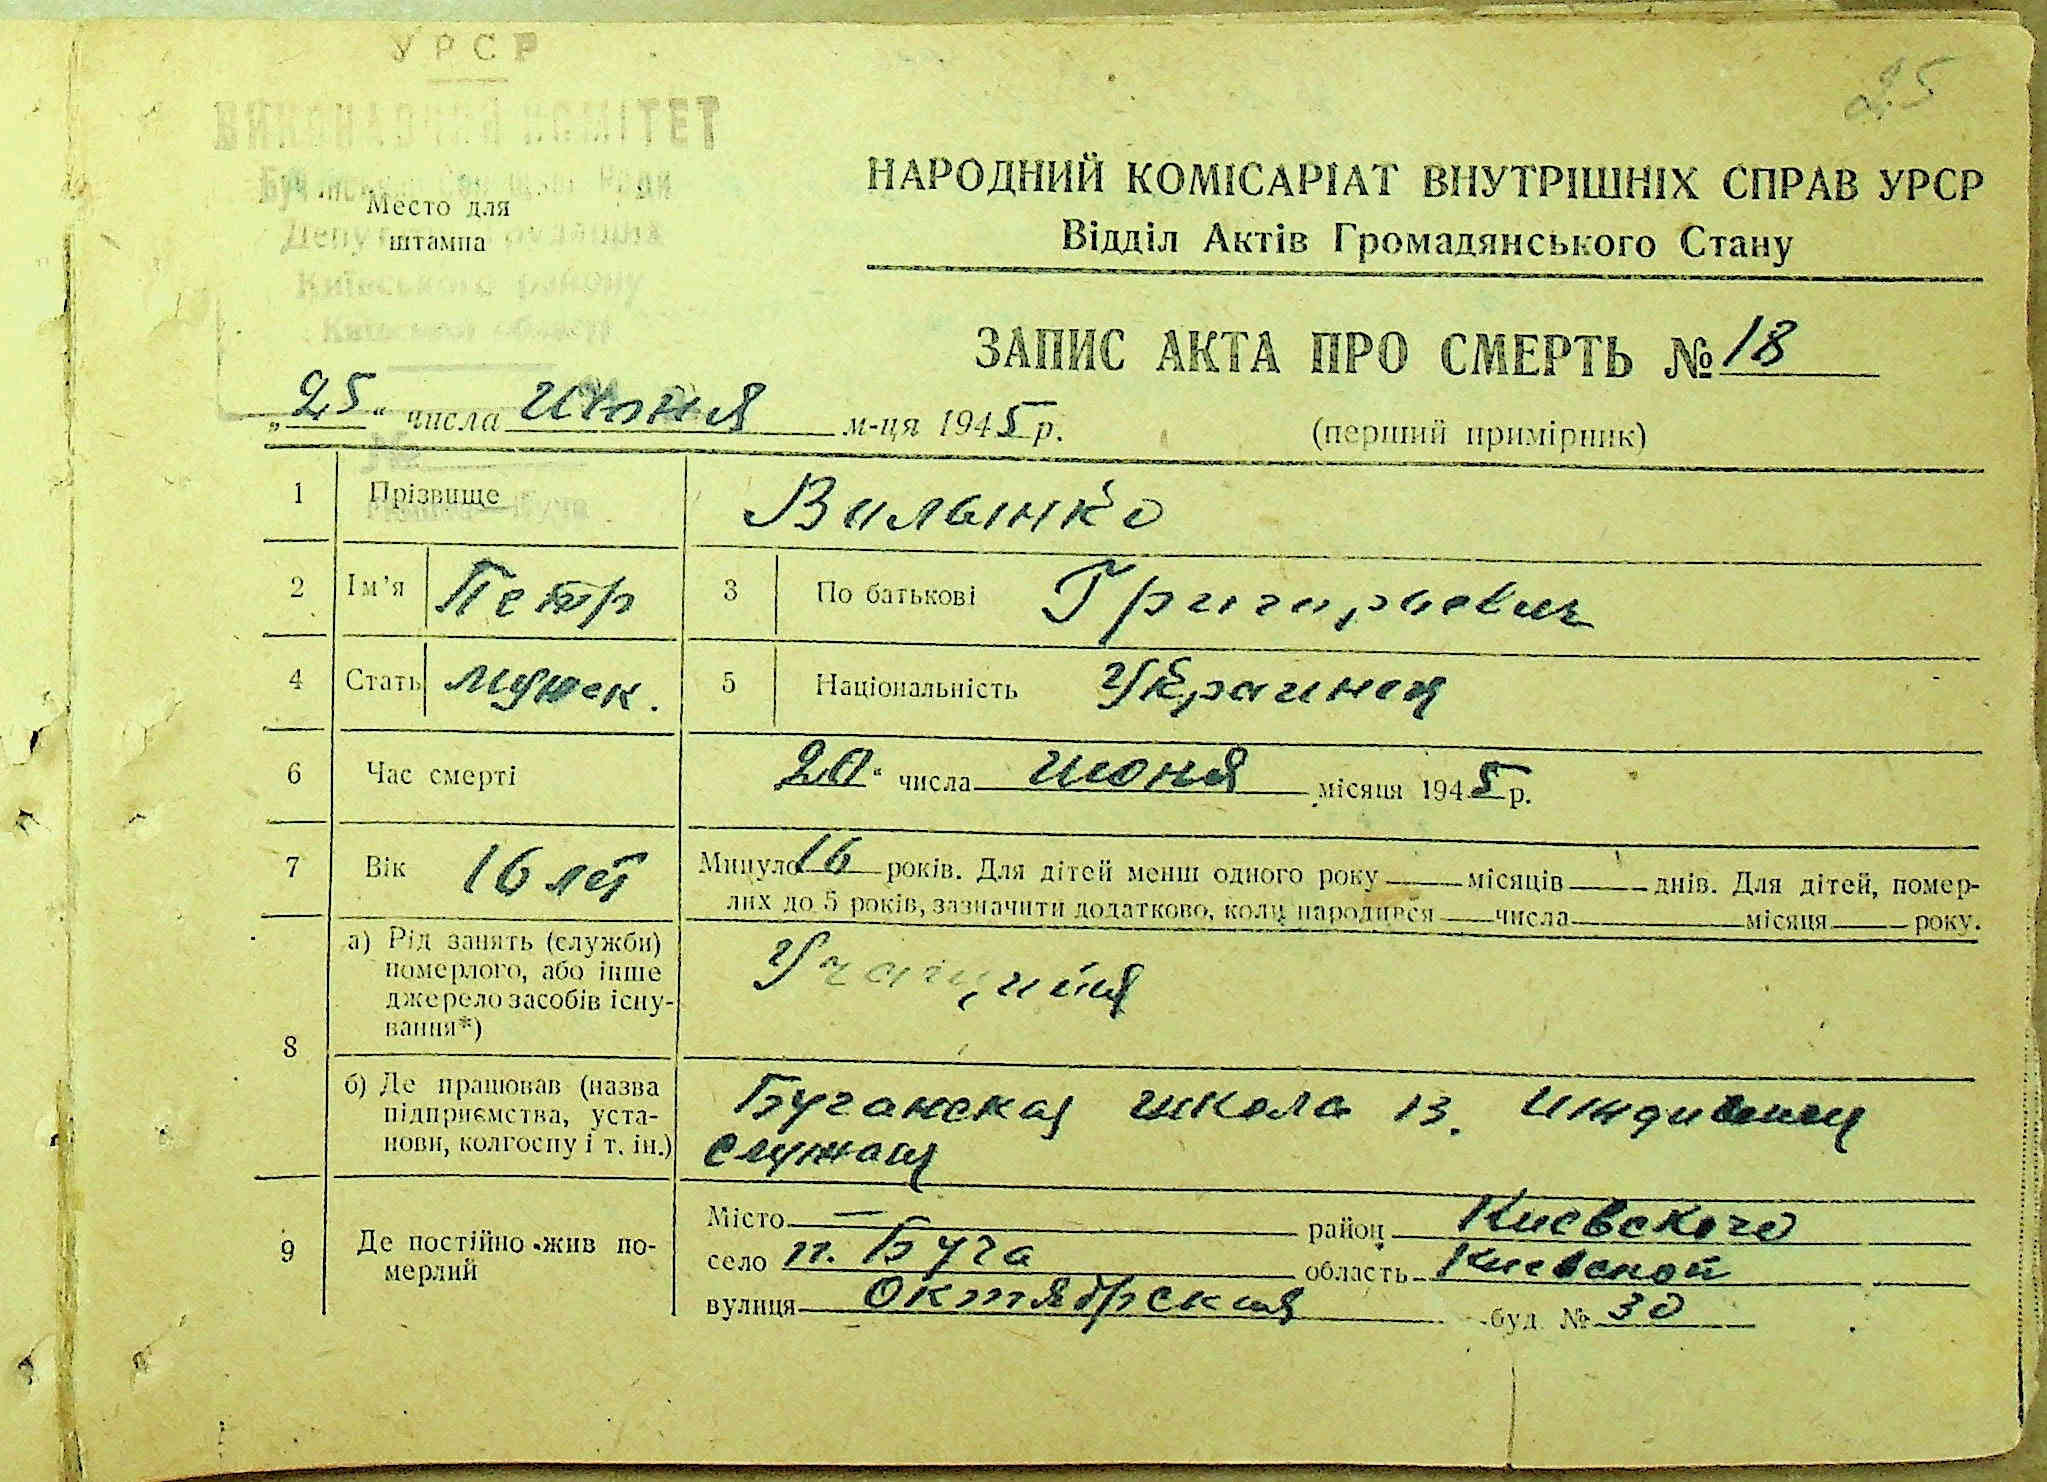 УРСР
ВИКОНАВЧИЙ КОМІТЕТ
25
Место для
штампа
Київського району
Київської області
НАРОДНИЙ КОМІСАРІАТ ВНУТРІШНІХ СПРАВ УРСР
Відділ Актів Громадянського Стану
ЗАПИС АКТА ПРО СМЕРТЬ № 18
„25“ числа июня м-ця 1945 р.
(перший примірник)
1 Прізвище Вилынко
2 Ім'я Петр 3 По батькові Григорьевич
4 Стать мужск. 5 Національність Украинец
6 Час смерті 20“ числа июня місяця 1945 р.
7 Вік 16 лет Минуло 16 років. Для дітей менш одного року місяців днів. Для дітей, помер-
лих до 5 років, зазначити додатково, коли народився числа місяця року.
8 а) Рід занять (служби)
померлого, або інше
джерело засобів існу-
вання*)
Учащийся
б) Де працював (назва
підприємства, уста-
нови, колгоспу і т. ін.)
Бучанская школа
служащ
9 Де постійно жив по-
мерлий
Місто — район Киевского
село п. Буча область Киевской
вулиця Октябрская буд. № 30